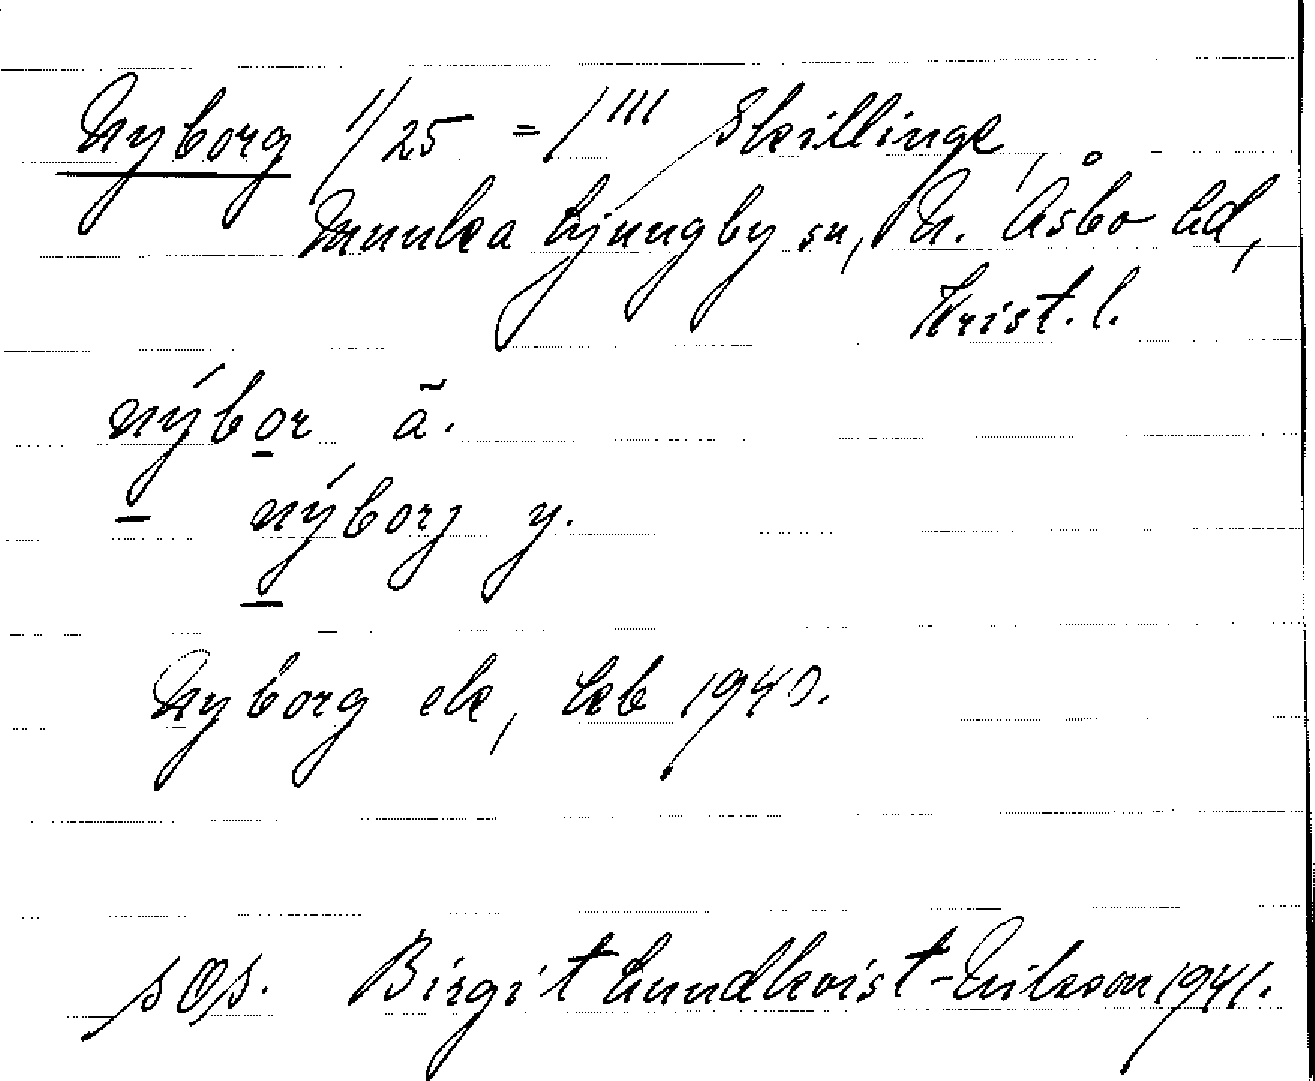 Nyborg 1/25 = 1 III Skillinge,
Munka Ljungby sn, N. Åsbo hd,
Krist. l.
nýbor ä.
nýborj y.
Nyborg ek, kb 1940.
sOs. Birgit Lundkvist-Erikson 1941.